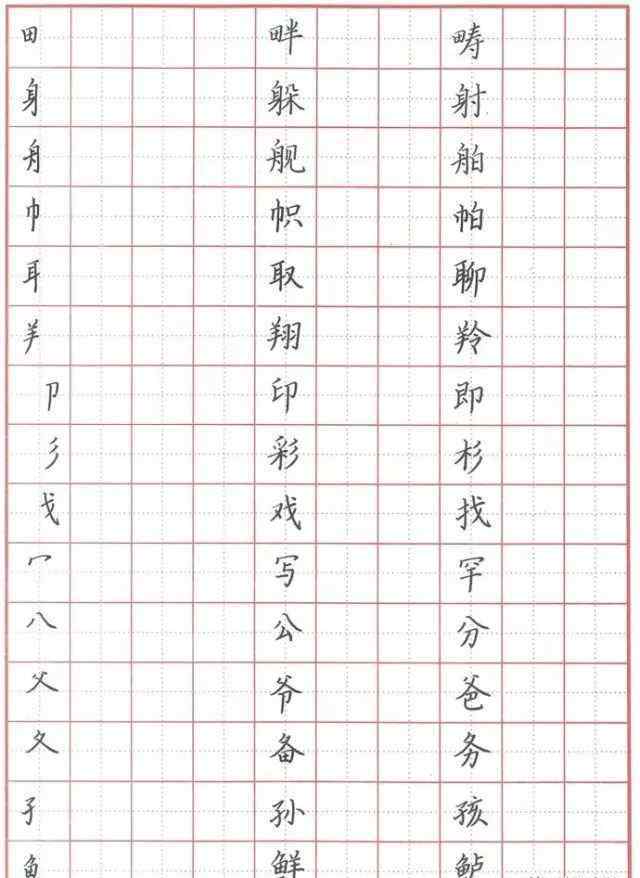 田 畔 畴
身 躲 射
舟 舰 舶
巾 帜 帕
耳 取 聊
羊 翔 羚
卩 印 即
彡 彩 杉
戈 戏 找
冖 写 罕
八 公 分
父 爷 爸
夂 备 务
孑 孙 孩
鱼 鲜 鲈